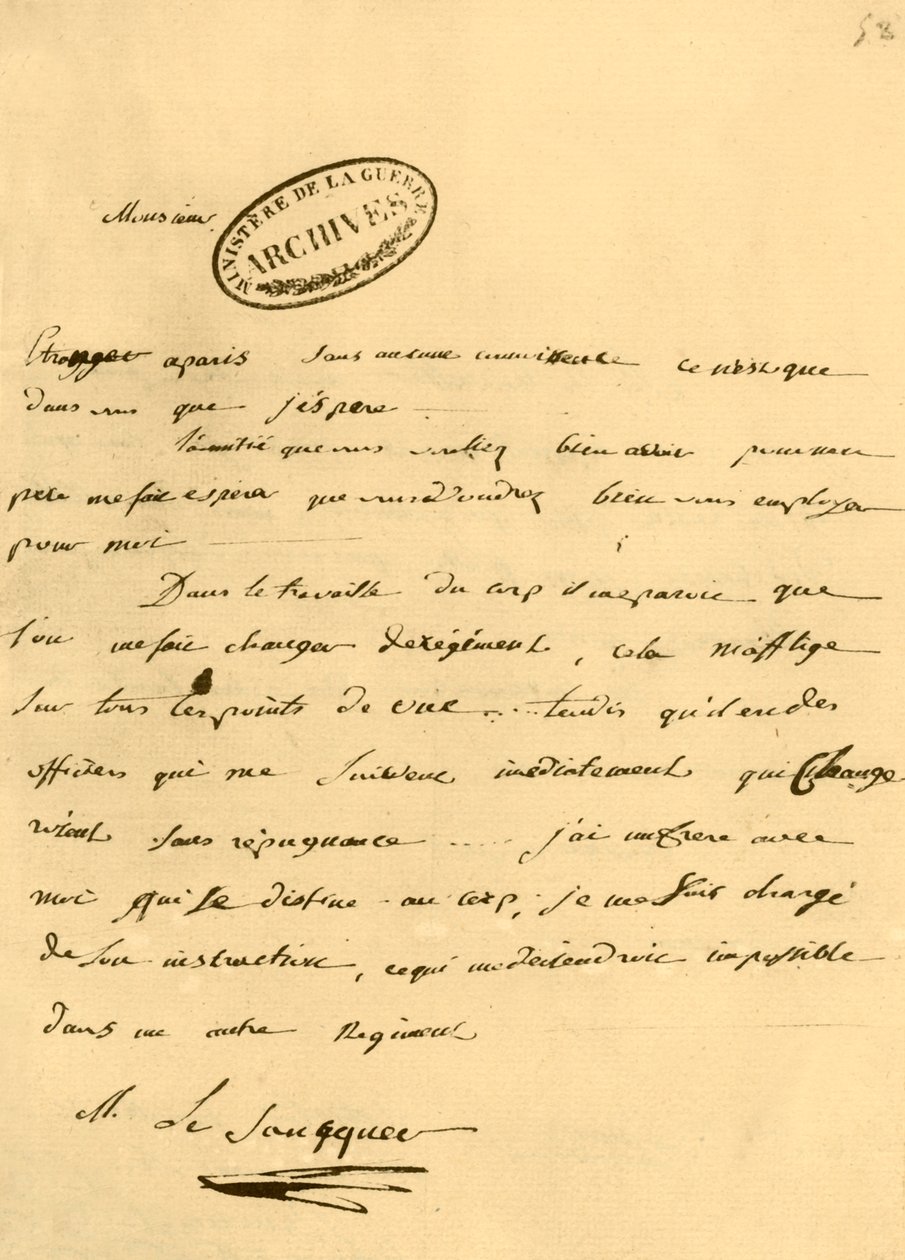 52
Monsieur
MINISTÈRE DE LA GUERRE
ARCHIVES
Etranger a paris sans aucune connoissence ce n'est que
dans vous que j'éspere
l'amitié que vous vouliez bien avoir pour mon
pere me fait esperer que vous voudrez bien vous employer
pour moi
Dans le travaille du corp il me paroit que
l'on me fait changer de régiment, cela m'afflige
sur tous les points de vue ..... tandis qu'il en des
officiers qui me suivent imediatement qui change
roient sans répugnance ..... j'ai un frere avec
moi qui se distine au corp, je me suis chargé
de son instruction, ce qui me deviendroit impossible
dans un autre Regiment
M. Le